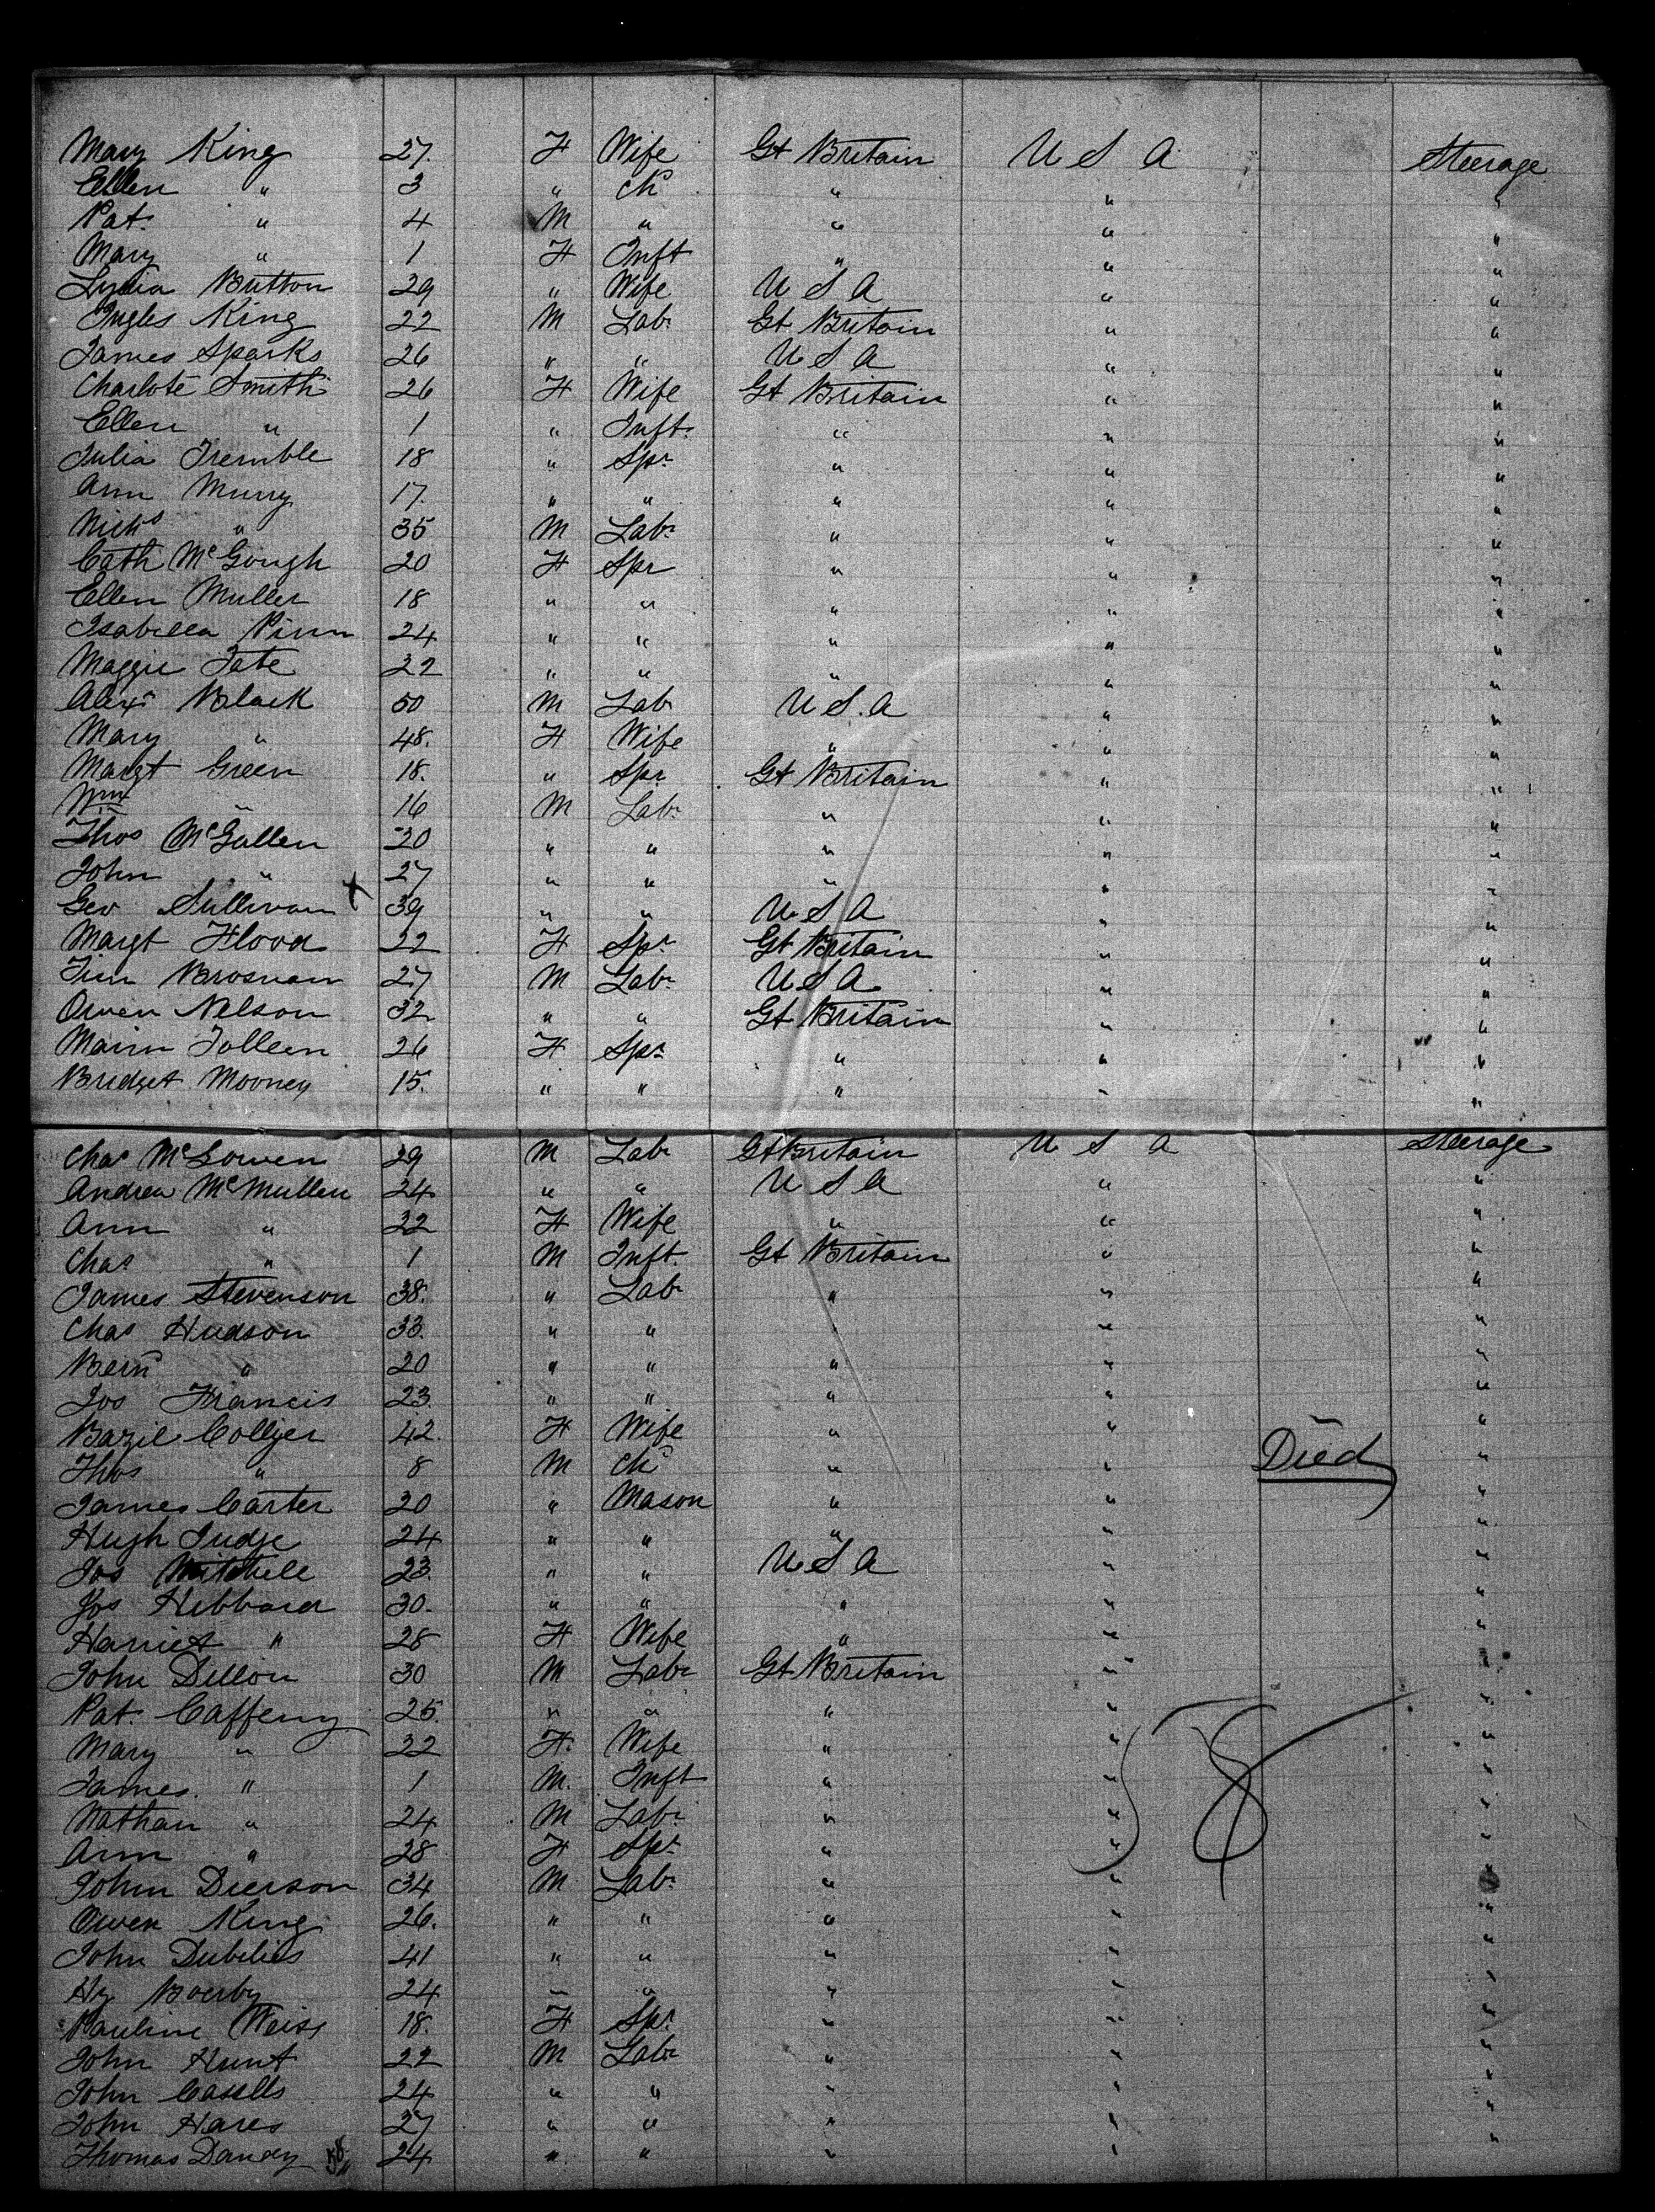 Mary King 27. F Wife Gt Britain U S A Steerage
Ellen " 3 " Ch " " "
Pat. " 4 M " " " "
Mary " 1 F Inft " " "
Lydia Britton 29 " Wife U S A " "
Ingles King 22 M Lab. Gt Britain " "
James Sparks 26 " " U S A " "
Charlote Smith 26 F Wife Gt Britain " "
Ellen " 1 " Inft. " " "
Julia Tremble 18 " Spr " " "
Ann Murry 17. " " " " "
Nichs " 35 M Labr " " "
Cath McGough 20 F Spr " " "
Ellen Muller 18 " " " " "
Isabella Pinn 24 " " " " "
Maggie Tate 22 " " " " "
Alexr Black 50 M Lab U S. A " "
Mary " 48. F Wife " " "
Margt Green 18. " Spr Gt Britain " "
Wm " 16 M Labr " " "
Thos McGallen 20 " " " " "
John " 27 " " " " "
Geo Sullivan x 39 " " U S A " "
Margt Flood 22 F Spr Gt Britain " "
Tim Brosnan 27 M Labr U S A " "
Owen Nelson 32 " " Gt Britain " "
Tolleen 26 F Spr " " "
Bridget Mooney 15. " " " " "
Chas McGowen 29 M Labr Gt Britain U S A Steerage
Andrew McMullen 24 " " U S A " "
Ann " 22 F Wife " " "
Chas " 1 M Inft. Gt Britain " "
James Stevenson 38. " Labr " " "
Chas Hudson 33. " " " " "
Bernd " 20 " " " " "
Jos Francis 23. " " " " "
Bazil Collyer 42. F Wife " " "
Thos " 8 M Ch " " Died "
James Carter 20 " Mason " " "
Hugh Judge 24 " " " " "
Jos Mitchell 23. " " U S A " "
Jos Hibbard 30. " " " " "
Harriet " 28 F Wife " " "
John Dillon 30 M Labr Gt Britain " "
Pat. Cafferny 25. " " " " "
Mary " 22 F. Wife " " "
James. " 1 M. Inft " " "
Nathan " 24 M Labr " " "
Ann " 28 F Spr " " "
John Dierson 34 M Labr " " "
Owen King 26. " " " " "
John Dubelies 41 " " " " "
Hy Boerby 24 " " " " "
Pauline Weiss 18. F Spr " " "
John Hunt 22 M Labr " " "
John Cassells 24 " " " " "
John Hares 27 " " " " "
Thomas Dancy 58 24 " " " "
58